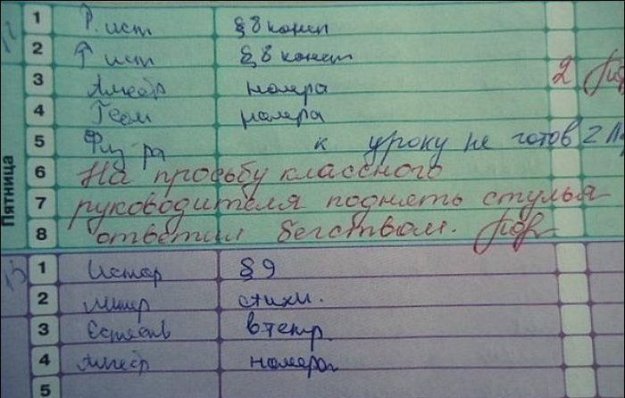 1 Р. ист § 8 консп
2 Р ист § 8 консп
3 Алгебр номера 2
4 Геом номера
5 Физ-ра к уроку не готов 2
6 На просьбу классного
7 руководителя поднять стулья
8 ответил бегством.
Пятница
1 Истор § 9
2 Литер стихи.
3 Естеств в тетр.
4 Алгебр номера
5